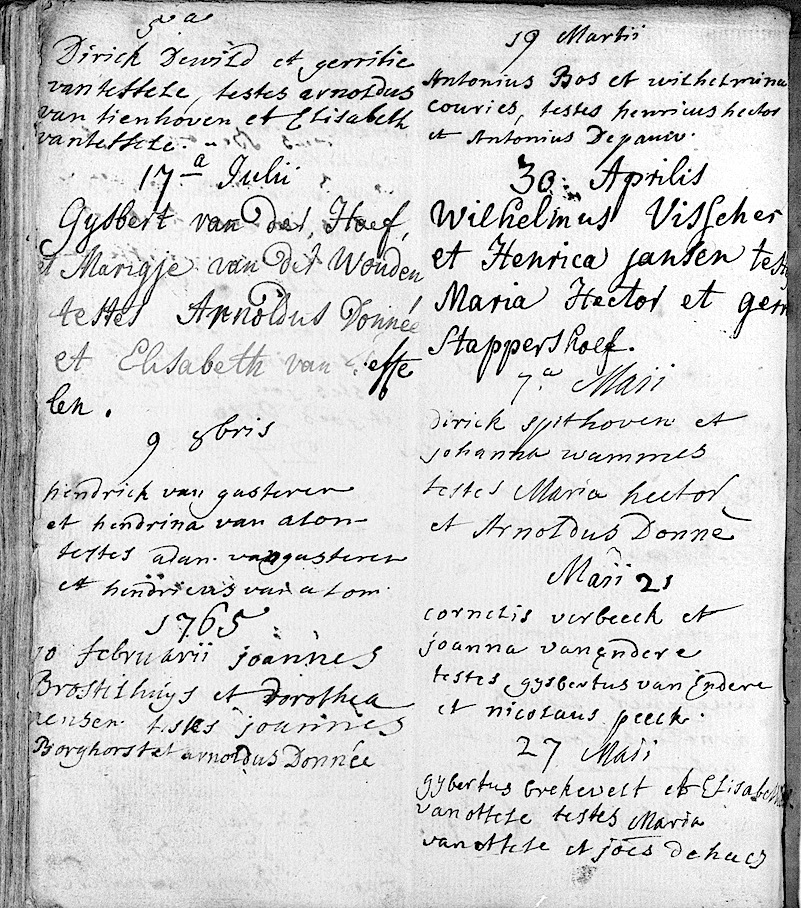 5 a
Dirick Dewild et gerritie
vantessele, testes arnoldus
van tienhoven et Elisabeth
vantessele
17 a Julii
Gysbert van der Hoef,
et Marigje van der Wouden
testes Arnoldus Donnée
et Elisabeth van Teffe
len.
9 8bris
hendrick van gasteren
et hendrina van alom
testes adan vangasteren
et hendricus van alom
1765
10 februarii joannes
Brostilhuys et Dorothea
jensen testes joannes
Borghorst et arnoldus Donnée
19 Martii
Antonius Bos et wilhelmina
couries, testes henricus hector
et Antonius Depauw.
30 Aprilis
Wilhelmus Visscher
et Henrica jansen test
Maria Hector et gerr
Stappershoef.
7 a Maii
dirick spithoven et
johanna wammes
testes Maria hector
et Arnoldus Donne
Maii 21
cornelis verbeeck et
joanna vanendere
testes gysbertus van Endere
et nicolaus peeck.
27 Maii
gybertus brekevelt et Elisabeth
vanottele testes Maria
vanottele et joes dehaes